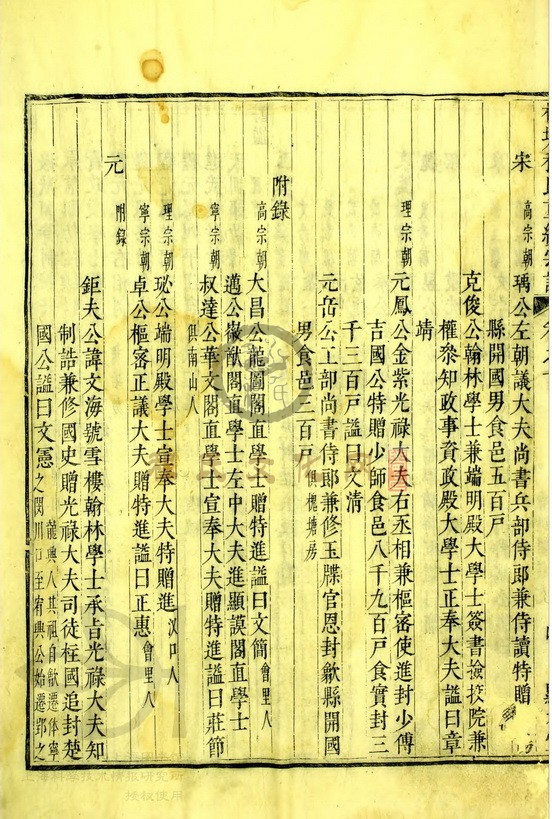 宋
高宗朝 瑀公左朝議大夫尚書兵部侍郎兼侍讀特贈
縣開國男食邑五百戶
克俊公翰林學士兼端明殿大學士簽書撿挍院兼
權叅知政事資政殿大學士正奉大夫謚曰章
靖
理宗朝 元鳳公金紫光祿大夫右丞相兼樞審使進封少傅
吉國公特贈少師食邑八千九百戶食實封三
千三百戶謚曰文清
元岳公工部尚書侍郎兼修玉牒官恩封歙縣開國
男食邑三百戶 俱槐塘房
附錄
高宗朝 大昌公龍圖閣直學士贈特進謚曰文簡 會里人
邁公徽猷閣直學士左中大夫進顯謨閣直學士
寧宗朝 叔達公華文閣直學士宣奉大夫贈特進謚曰莊節
俱南山人
理宗朝 珌公端明殿學士宣奉大夫特贈進 汊口人
寧宗朝 卓公樞審正議大夫贈特進謚曰正惠 會里人
元
附錄
鉅夫公諱文海號雪樓翰林學士承旨光祿大夫知
制誥兼修國史贈光祿大夫司徒柱國追封楚
國公謚曰文憲 龍興人其祖自歙遷休寧之閔川口至宥興公始遷郢之